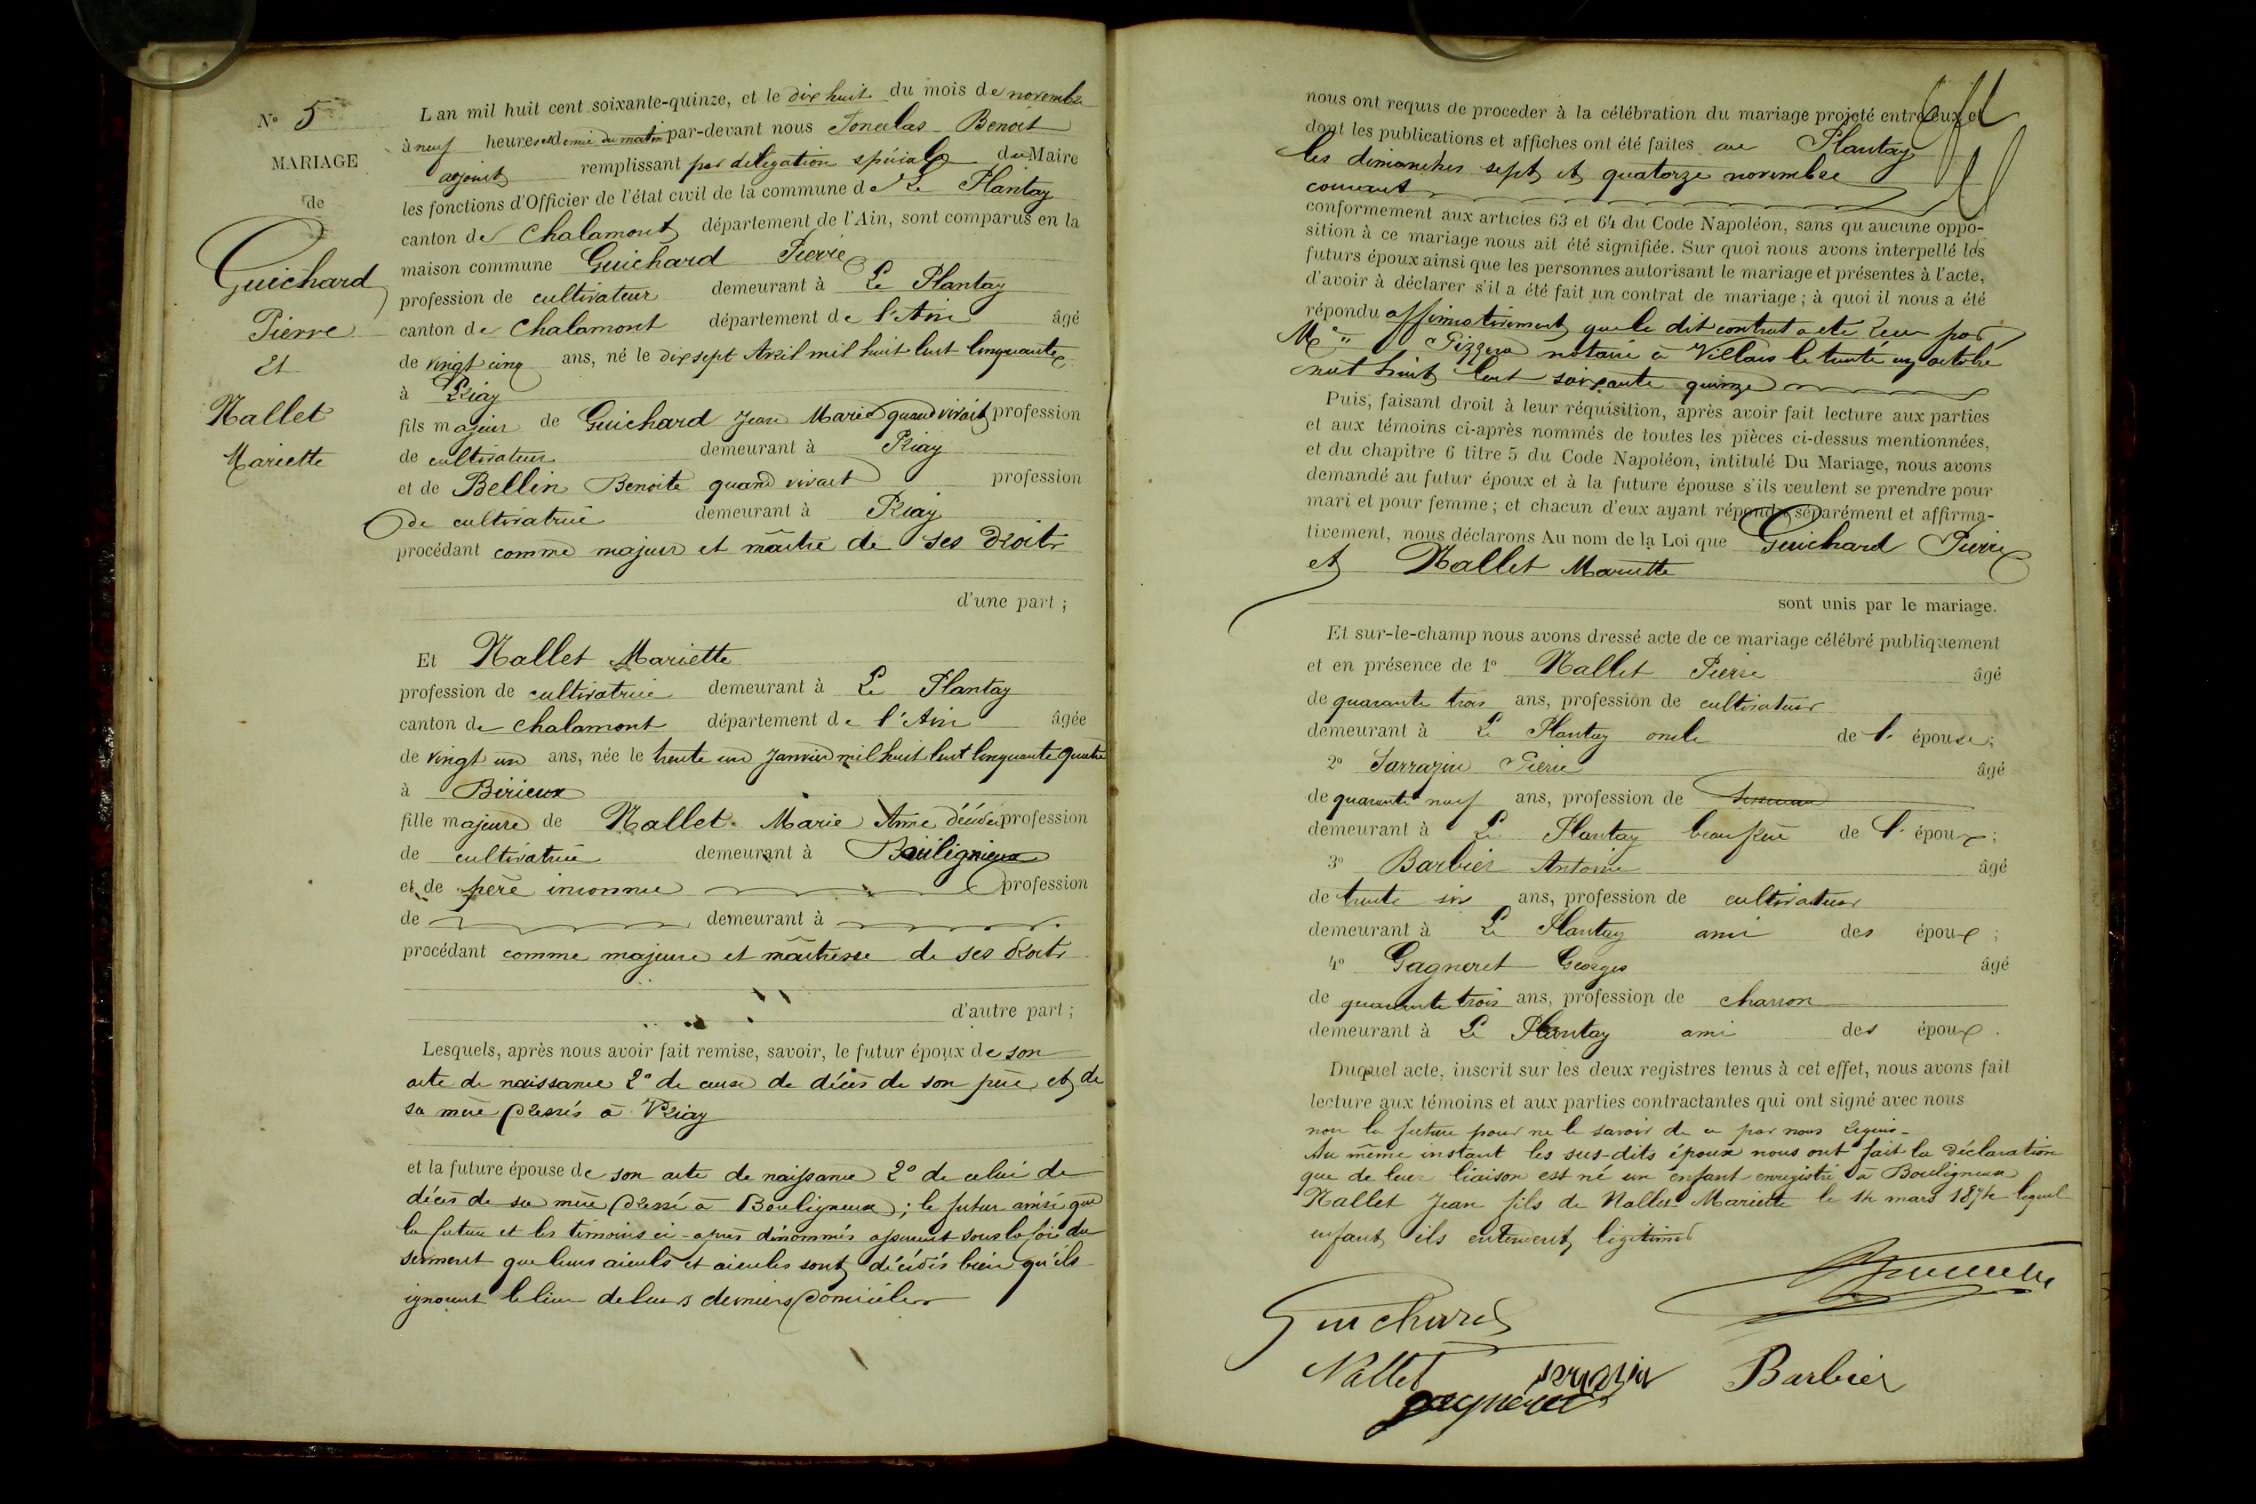 N° 5
MARIAGE
de
Guichard
Pierre
Et
Nallet
Mariette
L'an mil huit cent soixante-quinze, et le dix huit du mois de novembre
à neuf heures et demie du matin par-devant nous Benoit
adjoint remplissant par délégation spéciale du Maire
les fonctions d'Officier de l'état civil de la commune de Le Plantay
canton de Chalamont département de l'Ain, sont comparus en la
maison commune Guichard Pierre
profession de cultivateur demeurant à Le Plantay
canton de Chalamont département de l'Ain âgé
de vingt cinq ans, né le dix sept Avril mil huit cent cinquante
à Priay
fils majeur de Guichard Jean Marie quand vivait profession
de cultivateur demeurant à Priay
et de Bellin Benoite quand vivait profession
de cultivatrice demeurant à Priay
procédant comme majeur et maître de ses droits
d'une part ;
Et Nallet Mariette
profession de cultivatrice demeurant à Le Plantay
canton de Chalamont département de l'Ain âgée
de vingt un ans, née le trente un Janvier mil huit cent cinquante quatre
à Birieux
fille majeure de Nallet Marie Anne décédée profession
de cultivatrice demeurant à Bouligneux
et de père inconnu profession
de demeurant à
procédant comme majeure et maîtresse de ses droits
d'autre part ;
Lesquels, après nous avoir fait remise, savoir, le futur époux de son
acte de naissance 2° de ceux de décès de son père et de
sa mère dressés à Priay
et la future épouse de son acte de naissance 2° de celui de
décès de sa mère dressé à Bouligneux ; le futur ainsi que
la future et les témoins ci-après dénommés assurent sous la foi du
serment que leurs aieuls et aieules sont décédés bien qu'ils
ignorent le lieu de leurs derniers domiciles
nous ont requis de proceder à la célébration du mariage projeté entre eux et
dont les publications et affiches ont été faites au Plantay
les dimanches sept et quatorze novembre
courant
conformement aux articles 63 et 64 du Code Napoléon, sans qu'aucune oppo-
sition à ce mariage nous ait été signifiée. Sur quoi nous avons interpellé les
futurs époux ainsi que les personnes autorisant le mariage et présentes à l'acte,
d'avoir à déclarer s'il a été fait un contrat de mariage ; à quoi il nous a été
répondu affirmativement que le dit contrat a été recu par
Me notaire à Villars le trente un octobre
mil huit cent soixante quinze
Puis, faisant droit à leur réquisition, après avoir fait lecture aux parties
et aux témoins ci-après nommés de toutes les pièces ci-dessus mentionnées,
et du chapitre 6 titre 5 du Code Napoléon, intitulé Du Mariage, nous avons
demandé au futur époux et à la future épouse s'ils veulent se prendre pour
mari et pour femme ; et chacun d'eux ayant répondu séparément et affirma-
tivement, nous déclarons Au nom de la Loi que Guichard Pierre
et Nallet Mariette
sont unis par le mariage.
Et sur-le-champ nous avons dressé acte de ce mariage célébré publiquement
et en présence de 1° Nallet Pierre âgé
de quarante trois ans, profession de cultivateur
demeurant à Le Plantay oncle de l'épouse ;
2° Sarrazin Pierre âgé
de quarante neuf ans, profession de
demeurant à Le Plantay beau frère de l'époux ;
3° Barbier Antoine âgé
de trente six ans, profession de cultivateur
demeurant à Le Plantay ami des époux ;
4° Gagneret Georges âgé
de quarante trois ans, profession de charron
demeurant à Le Plantay ami des époux .
Duquel acte, inscrit sur les deux registres tenus à cet effet, nous avons fait
lecture aux témoins et aux parties contractantes qui ont signé avec nous
non la future pour ne le savoir de ce par nous requis-
Au même instant les sus-dits époux nous ont fait la déclaration
que de leur liaison est né un enfant enregistré à Bouligneux
Nallet Jean fils de Nallet Mariette le 14 mars 1874 lequel
enfant ils entendent légitimer
Guichard
Nallet
sarrazin
Barbier
gagneret